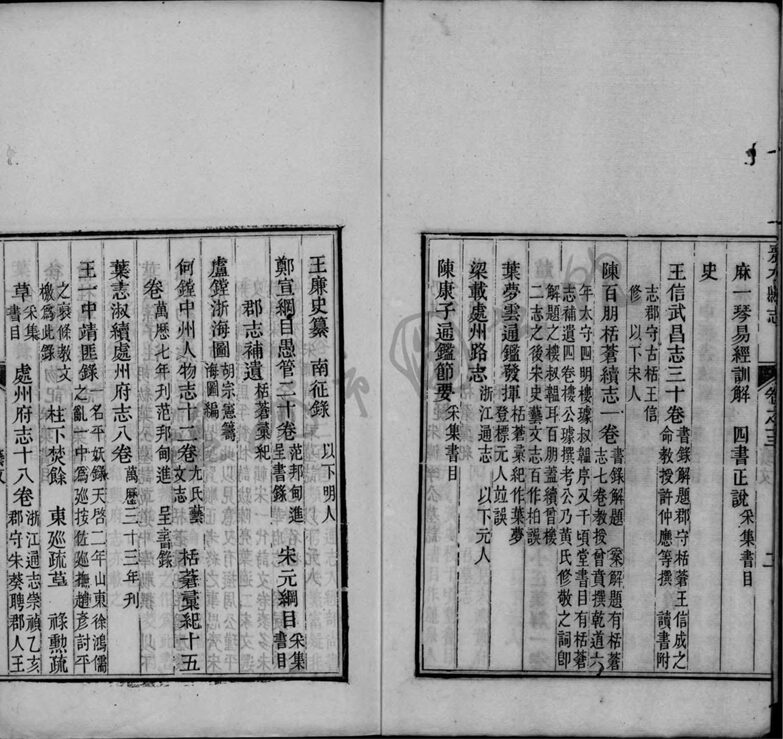 麻一琴易經訓解 四書正說采集書目
史
王信武昌志三十卷書錄解題郡守栝蒼王信成之命教授許仲應等撰 讀書附
志郡守古栝王信修 以下宋人
陳百朋栝蒼續志一卷書錄解題 案解題有栝蒼志七卷教授曾賁撰乾道六
年太守四明樓璩叔韞序又千頃堂書目有栝蒼志補遺四卷樓公璩撰考公乃黃氏修敬之詞卽
解題之樓叔韞百朋蓋續曾樓二志之後宋史藝文志百作拍誤
葉夢雲通鑑發揮栝蒼彙紀作葉夢登標元人並誤
梁載處州路志浙江通志 以下元人
陳康子通鑑節要采集書目
王廉史纂 南征錄以下明人
鄭宣綱目愚管二十卷范邦甸進呈書錄 宋元綱目采集書目
郡志補遺栝蒼彙紀
盧鏜浙海圖胡宗憲籌海圖編
何鏜中州人物志十二卷尤氏藝文志 栝蒼彙紀十五
卷萬曆七年刊范邦甸進呈書錄
葉志淑續處州府志八卷萬曆三十三年刊
王一中靖匪錄一名平妖錄天啓二年山東徐鴻儒之亂一中爲巡按偕巡撫趙彥討平
之裒條教文檄爲此錄 柱下焚餘 東巡疏草 祿勲疏
草采集書目 處州府志十八卷浙江通志崇禎乙亥郡守朱葵聘郡人王